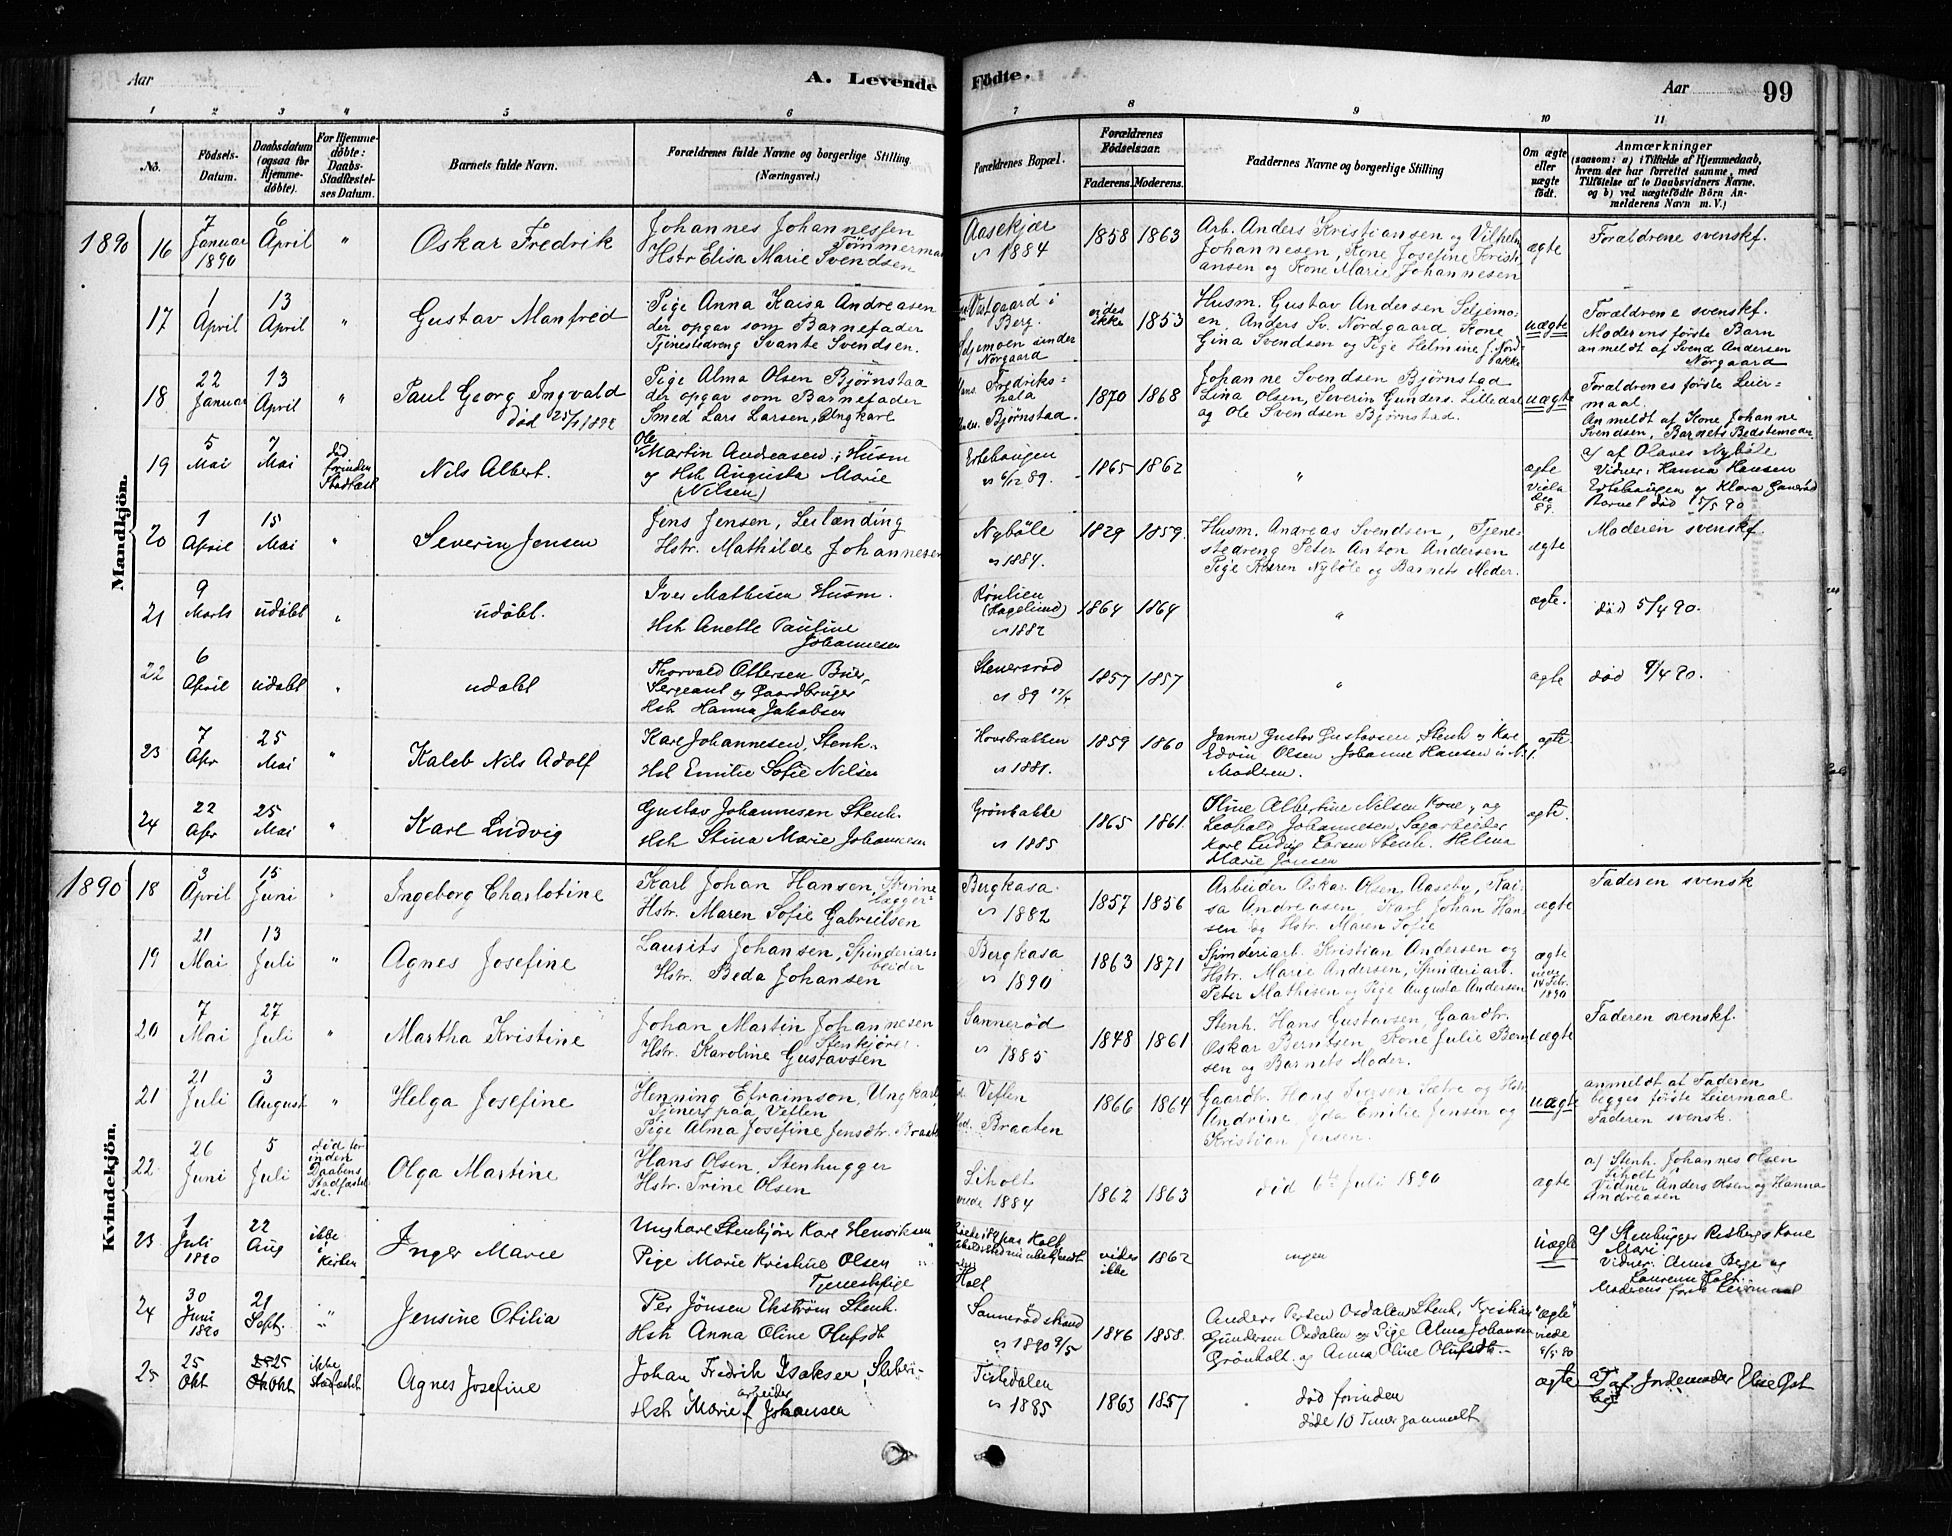 Aar
A. Levende Fødte.
Aar
99
1 2 3 4 5 6 7 8 9 10 11
No.
Fødsels-Datum.
Daabsdatum (ogsaa for Hjemmedøbte).
For Hjemmedøbte: Daabs-Stadfæstelses Datum.
Barnets fulde Navn.
Forældrenes fulde Navne og borgerlige Stilling (Næringsvei.)
Forældrenes Bopæl.
Forældrenes Fødselsaar.
Faderens. Moderens.
Faddernes Navne og borgerlige Stilling
Om ægte eller uægte født.
Anmærkninger
(saasom: a) i Tilfælde af Hjemmedaab, hvem der har forrettet samme, med Tilføielse af to Daabsvidners Navne, og b) ved uægtefødte Børn Anmelderens Navn m. V.)
Mandkjön.
1890 16 7 Januar 1890 6 April " Oskar Fredrik
Johannes Johannessen Tømmermand
Hstr Elisa Marie Svendsen
Aasekjær 1884 1858 1863
Arb. Anders Kristiansen og Vilhelm
Johannesen, Kone Josefine Kristi
ansen og Kone Marie Johannesen
ægte Forældrene svenskf.
17 1 April 13 April " Gustav Manfred
Pige Anna Kaisa Andreasen
der opgav som Barnefader
Tjenestedreng Svante Svendsen.
Vestgaard i Berg.
Seljemoen under Norgaard
vides ikke 1853
Husm. Gustav Andersen Seljemo-
en, Anders Sv. Nordgaard Kone
Gina Svendsen og Pige Helmine J. Nord
bakke
uægte
Forældrene svenskf.
Moderens første Barn
anmeldt af Svend Andersen
Norgaard
18 22 Januar 13 April " Paul Georg Ingvald
død 25/1 1892
Pige Alma Olsen Bjørnstad
der opgav som Barnefader
Smed Lars Larsen, Ungkarl
Fredrikshala
Bjørnstad.
1870 1868
Johanne Svendsen Bjørnstad
Lina Olsen, Severin Gunders. Lilledal
og Ole Svendsen Bjørnstad.
uægte
Forældrenes første Leier=
maal.
Anmeldt af Kone Johanne
Svendsen, Barnets Bedstemoder
19 5 Mai 7 Mai død forinden Stadfæst Nils Albert.
Ole Martin Andreasen, Husm
og Hst Augusta Marie
(Nilsen)
Ertehaugen 6/12 89. 1865 1862 "
ægte
a/ af Olaves Nybøle
Vidner: Hanna Hansen
Ertehaugen og Klara
Barnet død 5/5 90
20 1 April 15 Mai " Severin Jensen
Jens Jensen, Leilænding
Hstr. Mathilde Johannesen
Nybøle 1884. 1829 1859.
Husm. Andreas Svendsen, Tjene-
stedreng Peter Anton Andersen
Pige Karen Nybøle og Barnets Moder.
ægte Moderen svenskf.
21 9 Marts udøbt " udøbt.
Iver Mathisen Husm.
Hst Anette Pauline
Johannesen
Rønlien (Hagelund) 1882 1864 1864 " ægte. død 5/4 90.
22 6 April udøbt " udøbt
Thorvald Ottersen Buer,
Sergeant og Gaardbruger
Hst Hanna Jakobsen
Stenersrød 89 1857 1857 " ægte død 9/4 90.
23 7 Apr 25 Mai " Kaleb Nils Adolf
Karl Johannesen, Stenh..
Hst Emilie Sofie Nilsen
Hovsbakken 1881. 1859 1860
Janne Gustav Gustavsen, Stenh og Kone
Edvin Olsen, Johanne Hansen
Moderen.
ægte.
24 22 Apr 25 Mai " Karl Ludvig
Gustav Johannesen Stenh.
Hst Stina Marie Johannesen
Grønbakke 1885 1865 1861.
Oline Albertine Nilsen Kone, og
Leopold Johannesen, Sagarbeider
Karl Ludvig Larsen Stenh. Helma
Marie Jensen
ægte.
Kvindekjön.
1890 18 3 April 15 Juni " Ingeborg Charlotine
Karl Johan Hansen, Skinne
lægger
Hstr. Maren Sofie Gabrielsen
Bergkasa. 1882 1857 1856
Arbeider Oskar Olsen Aaseby, Kai-
sa Andreasen, Karl Johan Han-
sen og Hstr. Maren Sofie
ægte Faderen svensk
19 21 Mai 13 Juli " Agnes Josefine
Laurits Johansen, Spinderiar-
beider
Hstr. Beda Johansen
Bergkasa 1890 1863 1871
Spinderiarb. Kristian Andersen og
Hstr. Marie Andersen, Spinderiarb.
Peter Mathisen og Pige Augusta Andersen
ægte viede 14 Febr. 1890
20 7 Mai 27 Juli " Martha Kristine
Johan Martin Johannesen
Stenkjører.
Hstr. Karoline Gustavsen
Sannerød 1885 1848 1861
Stenh. Hans Gustavsen, Gaardbr.
Oskar Berntsen, Kone Julie Bernt
sen og Barnets Moder.
ægte Faderen svenskf.
21 21 Juli 3 August " Helga Josefine
Henning Efraimson, Ungkarl,
Tjener paa Vetlen
Pige Alma Josefine Jensdtr. Braaten
Vetlen
Braaten
1866 1864
Gaardbr. Hans Iversen Sætre og Hstr.
Andrine, Ida Emilie Jensen og
Kristian Jensen.
uægte
anmeldt af Faderen
begges første Leiermaal
Faderen svensk.
22 26 Juni 5 Juli død forinden Daabens Stadfæstelse. Olga Martine
Hans Olsen, Stenhugger
Hstr. Trine Olsen
Liholt viede 1884 1862 1863
død 6te Juli 1890
ægte
a) Stenh. Johannes Olsen
Liholt.
Vidner Anders Olsen og Hanna
Andreasen
23 1 Juli 1890 22 Aug ikke i Kirken Inger Marie
Ungkarl Stenkjører Karl Henriksen
Pige Marie Kristine Olsen
Tjenestepige
Holt
vides ikke 1862 ingen uægte
a/ Stenhugger Risbergs Kone
Mari
Vidner. Anna Berge og
Laurense Holt.
Moderens første Leiermaal
24 30 Juni 1890 21 Sept. " Jensine Otilia
Per Jönsen Ekstrøm Stenh.
Hst Anna Oline Olufsdt
Sannerødstrand 1890 9/5 1846 1858.
Anders Persen Osdalen Stenh, Kristian
Gundersen Osdalen og Pige Alma Johansen
Grønholt. og Anna Oline Olufsdt.
"ægte" viede 9/5 90
25 25 Okt 25 Okt ikke Stadfæstet Agnes Josefine
Johan Fredrik Isaksen, Sliberi-
arbeider
Hst Marie f Johansen
Tistedalen 1885 1863 1857
død forinden
døde 10 Timer gammelt
ægte a/ af Jordemoder Elise Øst